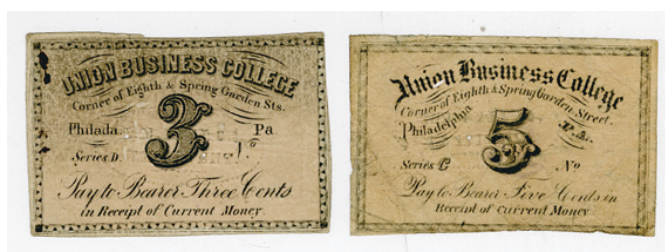 UNION BUSINESS COLLEGE
Corner of Eighth & Spring Garden Sts.
Philada. 3 Pa
Series D. No
Pay to Bearer Three Cents
in Receipt of Current Money
Union Business College
Corner of Eighth & Spring Garden Street.
Philadelphia 5 Pa.
Series C No
Pay to Bearer Five Cents in
Receipt of Current Money